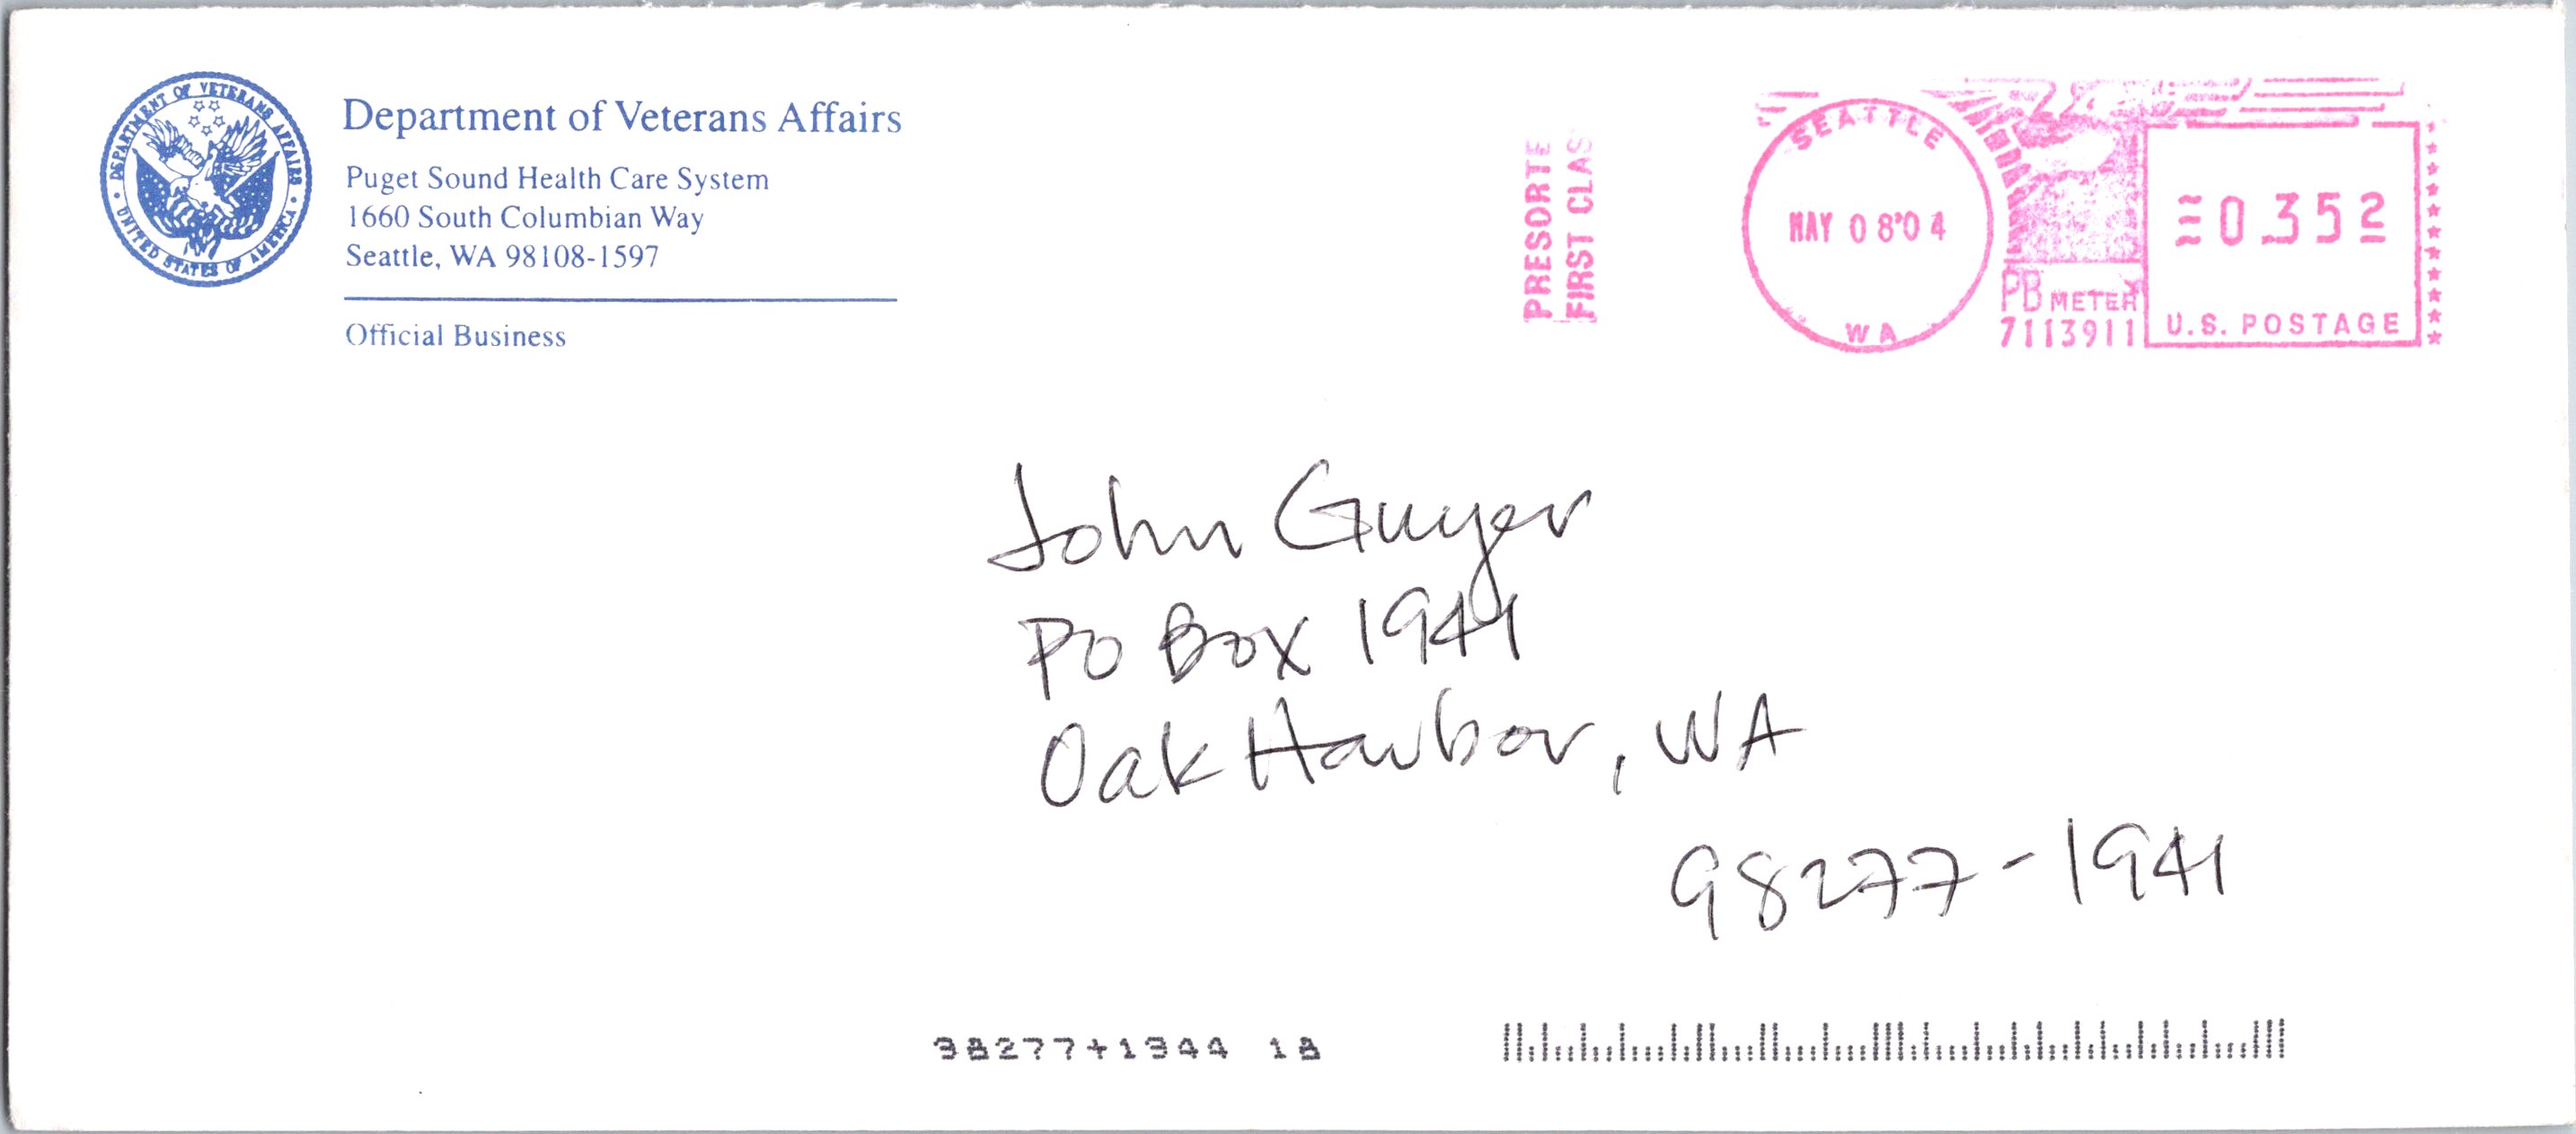 DEPARTMENT OF VETERANS AFFAIRS
UNITED STATES OF AMERICA
Department of Veterans Affairs
Puget Sound Health Care System
1660 South Columbian Way
Seattle, WA 98108-1597
Official Business
PRESORTE
FIRST CLAS
SEATTLE
MAY 08'04
WA
PB METER
7113911
0.352
U.S. POSTAGE
John Guyer
PO Box 1941
Oak Harbor, WA
98277-1941
98277+1944 18